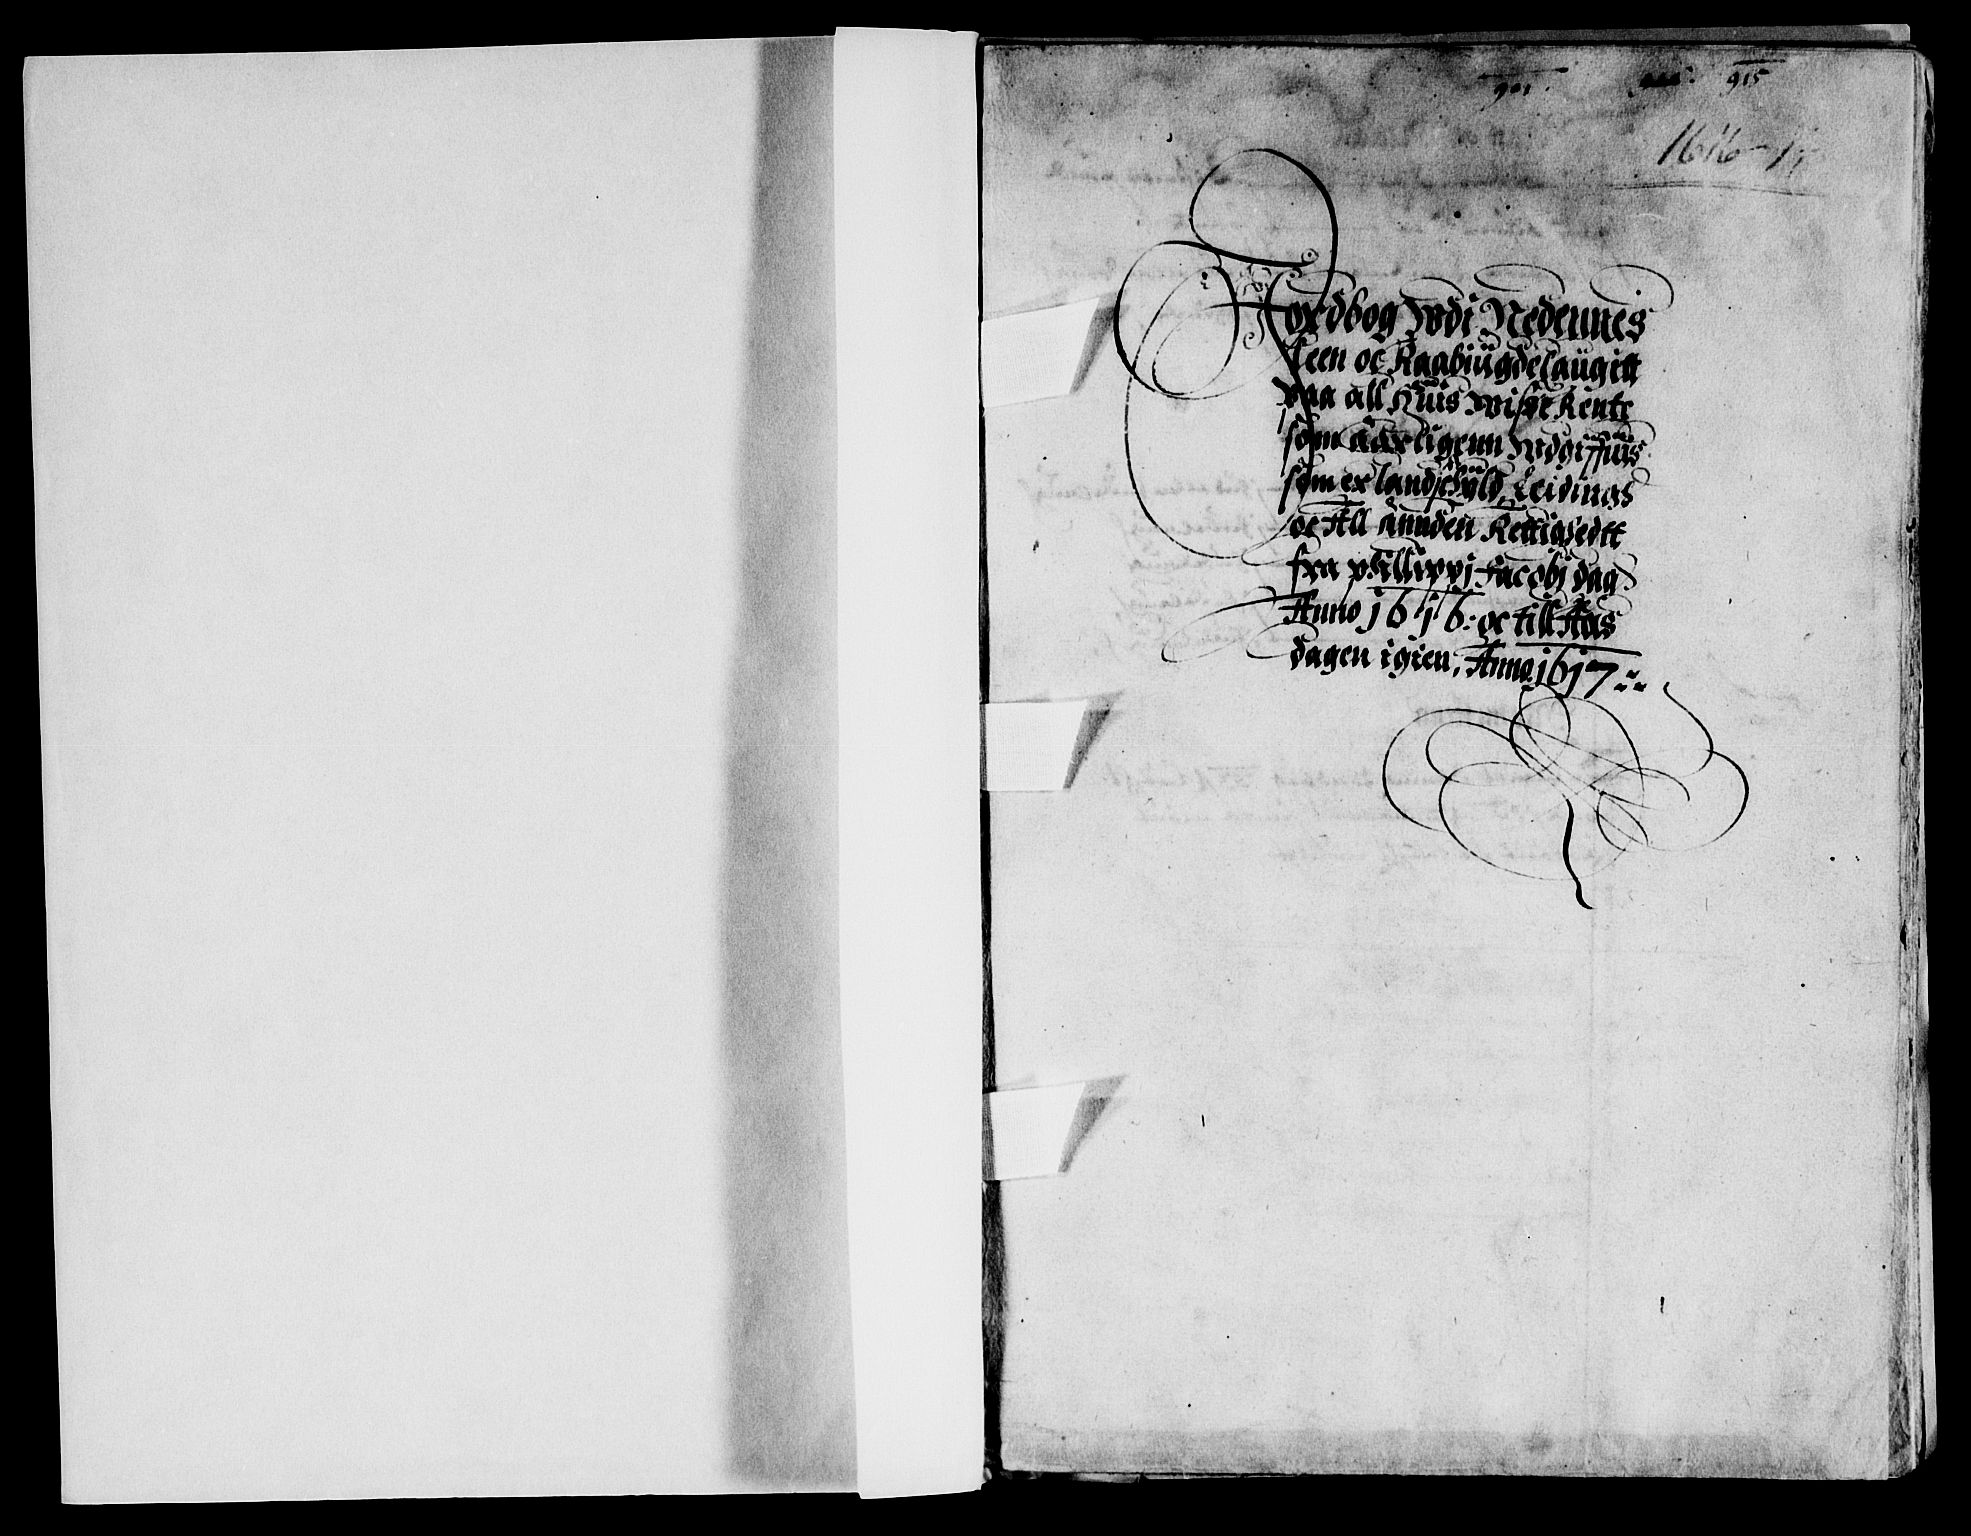 901.
915
1616-17
Jordbog Wdi Nedennes
Leen oc Raabiügdelaugitt
paa all Hüis Wisse Rente
som aarligenn Wdgiffüis
som er landschyld, Leidings
oc All annden Rettighedtt
fra philippi Jacobi dag
Anno 1616: oc till Aars
dagen igien, Anno 1617